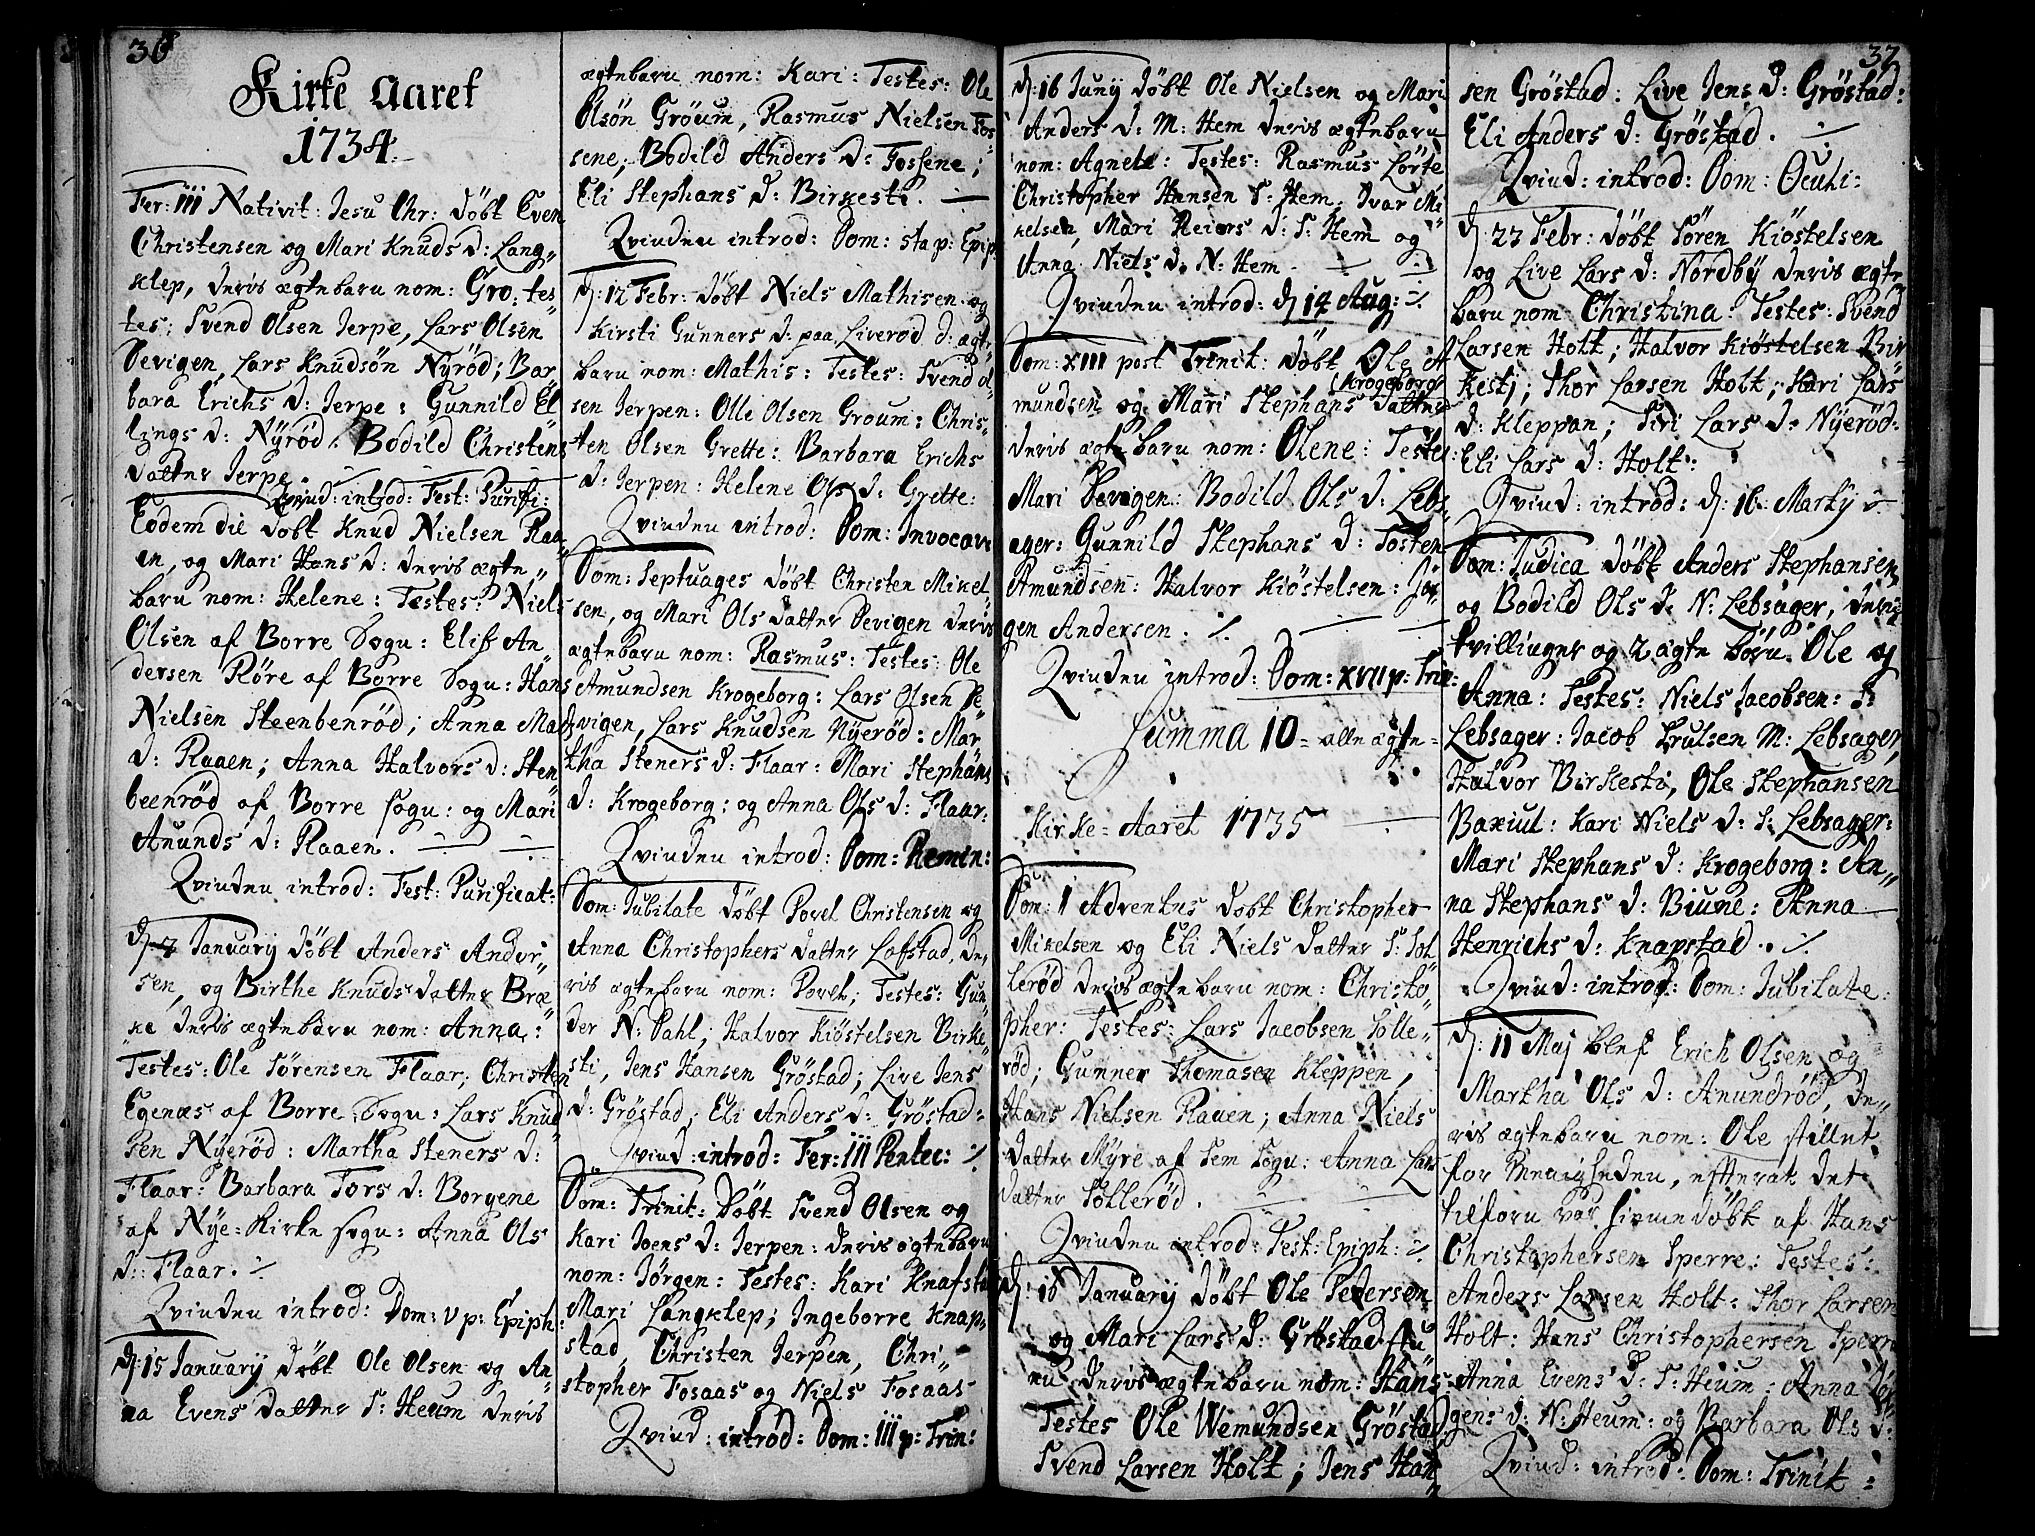 36
Kirke Aaret
1734.
Fer: III Nativit: Jesu Chr: döbt Even
Christensen og Mari Knuds d: Lang„
klep, deris ægtebarn nom: Gro: tes„
tes: Svend Olsen Jerpe, Lars Olsen
Sevigen, Lars Knudsön Nyröd; Bar„
bara Erichs d: Jerpe: Gunnild El„
lings d: Nyröd: Bodild Christens
datter Jerpe.
Qvind: introd: Fest: Purifi:
Eodem die döbt Knud Nielsen Raa„
en, og Mari Hans d: deris ægte„
barn nom: Helene: Testes: Niels
Olsen af Borre Sogn: Elif An„
dersen Röre af Borre Sogn: Hans
Nielsen Steenbenröd; Anna Mads
d: Raaen; Anna Halvors d: Sten„
beenröd af Borre sogn: og Mari
Anunds d: Raaen.
Qvinden introd: Fest: Purificat:
d: 7 January döbt Anders Ander„
sen, og Birthe Knuds datter Bræ„
ke deris ægtebarn nom: Anna:
Testes: Ole Sörensen Flaar, Christen
Egenæs af Borre Sogn: Lars Knud„
sen Nyeröd: Martha Steners d:
Flaar: Barbara Tors d: Borgene
af Nye-Kirke sogn: Anna Ols
d: Flaar.
Qvinden introd: Dom: V p: Epiph:
d: 15 January döbt Ole Olsen og An„
na Evens datter S: Heum deris
ægtebarn nom: Kari: Testes: Ole
Olsön Gröum, Rasmus Nielsen Fos„
sene, Bodild Anders d: Fossene;
Eli Stephans d: Birkesti.
Qvinden introd: Dom: sta p: Epip:
d: 12 Febr: döbt Niels Mathisen og
Kirsti Gunners d: paa Liverod d: ægte„
barn nom: Mathis: Testes: Svend Ol„
sen Jerpen: Olle Olsen Groum: Chris„
ten Olsen Grette: Barbara Erichs
d: Jerpen: Helene Ols d: Grette:
Qvinden introd: Dom: Invocav:
Dom: Septuages döbt Christen Mikel„
sen, og Mari Ols datter Sevigen deris
ægtebarn nom: Rasmus: Testes: Ole
Amundsen Krogeborg: Lars Olsen Se„
vigen, Lars Knudsen Nyeröd: Mar„
tha Steners d: Flaar: Mari Stephans
d: Krogeborg: og Anna Ols d: Flaar:
Qvinden introd: Dom: Remin:
Dom: Jubilate döbt Povel Christensen og
Anna Christophers datter Lofstad, de„
ris ægtebarn nom: Povel; Testes: Gun„
der N: Dahl; Halvor Kiöstelsen Birke„
sti, Jens Hansen Gröstad; Live Jens
d: Gröstad; Eli Anders d: Gröstad:
Qvind: introd: Fer: III Pentec:
Dom: Trinit: Döbt Svend Olsen og
Kari Joens d: Jerpen: deris ægtebarn
nom: Jörgen: Testes: Kari Knafstad
Mari Langklep; Ingeborre Knap„
stad, Christen Jerpen, Chri„
stopher Fosaas og Niels Fosaas
Qvind: introd: Dom: III p: Trin:
d: 16 Juny döbt Ole Nielsen og Mari
Anders d: M: Hem deris ægtebarn
nom: Agnete: Testes: Rasmus Lörte
Christopher Hansen S: Hem, Ivar Mi„
kelsen, Mari Reiers d: S: Hem og
Anna Niels d: N: Hem.
Qvinden introd: d: 14 Aug:
Dom: XIII post Trinit: döbt Ole A„
mundsen og Mari Stephans datter (Krogeborg
deris ægtebarn nom: Olene: Testes:
Mari Sevigen: Bodild Ols d: Lebs„
ager: Gunnild Stephans d: Tosten
Amundsen: Halvor Kiöstelsen: Jör„
gen Andersen.
Qvinden introd: Dom: XVII p: Trin:
Summa 10 = alle ægte =
Kirke = Aaret 1735
Dom: 1 Adventus döbt Christopher
Mikelsen og Eli Niels datter S: Sol„
leröd deris ægtebarn nom: Christo„
pher: Testes: Lars Jacobsen Solle„
röd; Gunner Thomasen Kleppen,
Hans Nielsen Raaen; Anna Niels
datter Myre af Sem Sogn: Anna Lars
datter Solleröd.
Qvinden introd: Fest: Epiph:
d: 16 January döbt Ole Pedersen
og Mari Lars d: Gröstad
deris ægtebarn nom: Hans
Testes Ole Wemundsen Gröstad
Svend Larsen Holt; Jens Han„
37
sen Gröstad: Live Jens d: Gröstad:
Eli Anders d: Gröstad.
Qvind: introd: Dom: Oculi:
d: 27 Febr: döbt Sören Kiöstelsen
og Live Lars d: Nordby deris ægte„
barn nom: Christina: Testes: Svend
Larsen Holt; Halvor Kiöstelsen Bir„
kestj; Thor Larsen Holt; Kari Lars
d: Kleppan; Siri Lars d: Nyeröd:
Eli Lars d: Holt:
Qvind: introd: d: 16 Martij
Dom: Judica döbt Anders Stephansen
og Bodild Ols d: N: Lebsager, deris
tvillinger og 2 ægte börn. Ole og
Anna: Testes: Niels Jacobsen: S:
Lebsager: Jacob Brulsen M: Lebsager,
Halvor Birkesti, Ole Stephansen
Baxiul: Kari Niels d: S: Lebsager:
Mari Stephans d: Krogeborg: An„
na Stephans d: Biune: Anna
Henrichs d: Knapstad.
Qvind: introd: Dom: Jubilate:
d: 11 Maj blef Erich Olsen og
Martha Ols d: Anundröd, de„
ris ægtebarn nom: Ole stillet
for meenigheden, efterat det
tilforn var hiemedöbt af Hans
Christophersen Sperre: Testes:
Anders Larsen Holt: Thor Larsen
Holt: Hans Christophersen Sperre
Anna Evens d: S: Heum: Anna Jör„
gens d: N: Heum: og Barbara Ols d:
Qvind: introd: Dom: Trinit: